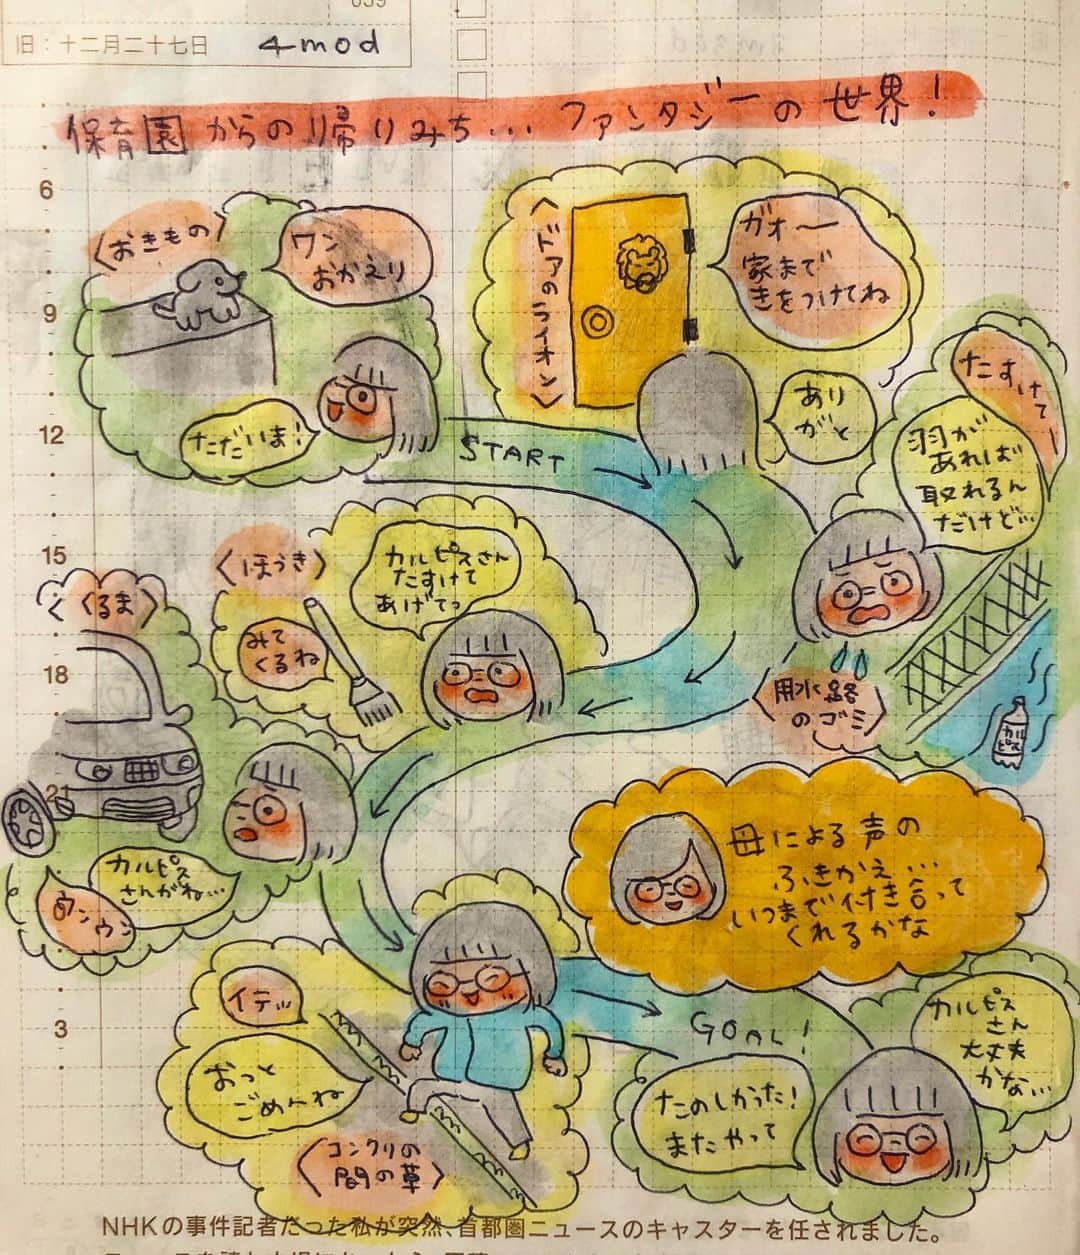 旧：十二月二十七日
4mod
保育園からの帰りみち… ファンタジーの世界！
6
9
12
15
18
21
3
〈おきもの〉
ワン
おかえり
ただいま！
〈ドアのライオン〉
ガオー
家まで
きをつけてね
あり
がと
START
たすけてー
羽が
あれば
取れるん
だけど…
〈用水路
のゴミ〉
カルピス
〈ほうき〉
カルピスさん
たすけて
あげてっ
みて
くるね
〈くるま〉
カルピス
さんがね…
ウンウン
母による声の
ふきかえ…
いつまで付き合って
くれるかな
イテッ
おっと
ごめんね
〈コンクリの
間の草〉
GOAL！
カルピス
さん
大丈夫
かな…
たのしかった！
またやって
NHKの事件記者だった私が突然、首都圏ニュースのキャスターを任されました。